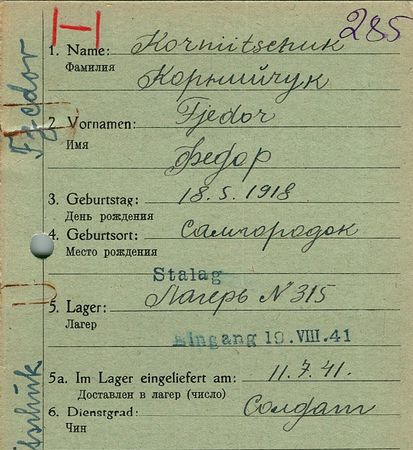 285
1. Name: Kornütschuk
Фамилия
Корнийчук
2. Vornamen: Fjedor
Имя
Федор
3. Geburtstag: 18.5.1918
День рождения
4. Geburtsort: Самгородок
Место рождения
Stalag
5. Lager: Лагерь N 315
Лагер
Eingang 19. VIII. 41
5a. Im Lager eingeliefert am: 11.7.41.
Доставлен в лагер (число)
6. Dienstgrad: Солдат
Чин
Fjedor